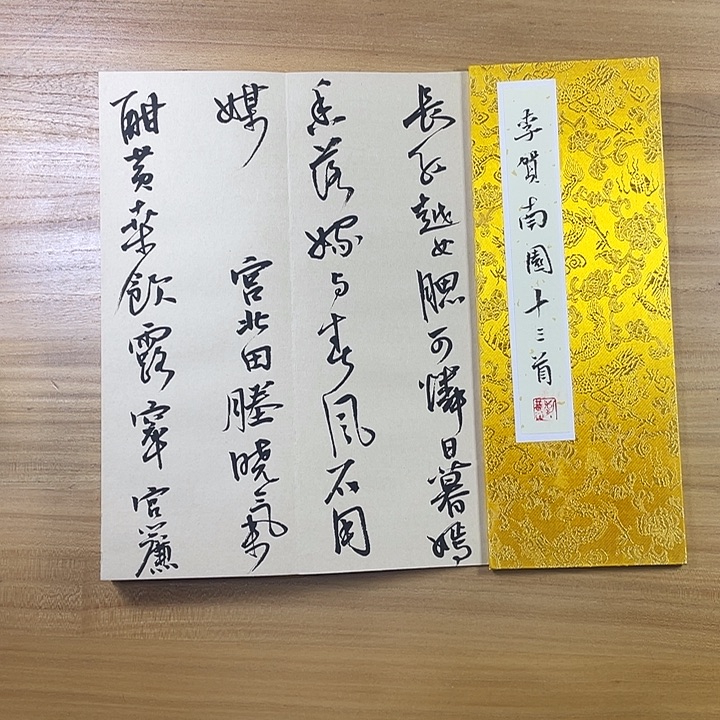 李賀南園十三首
長紅越女腮可憐日暮嫣
香落嫁与春風不用
媒
宮北田塍曉氣
酣黄桑飲露窣宮簾